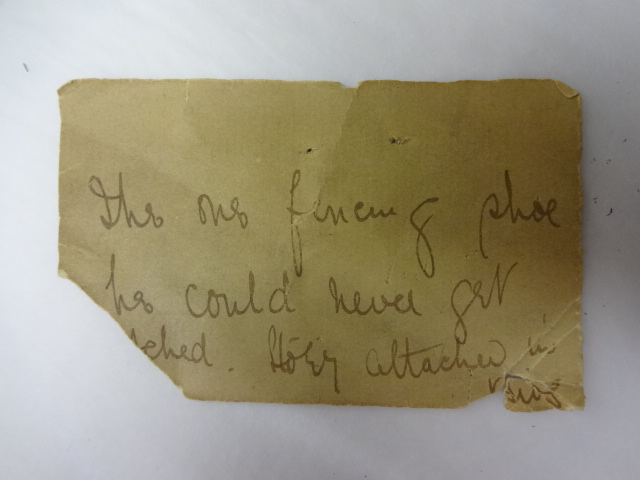 The one fencing shoe
he could never get
tched. attached in